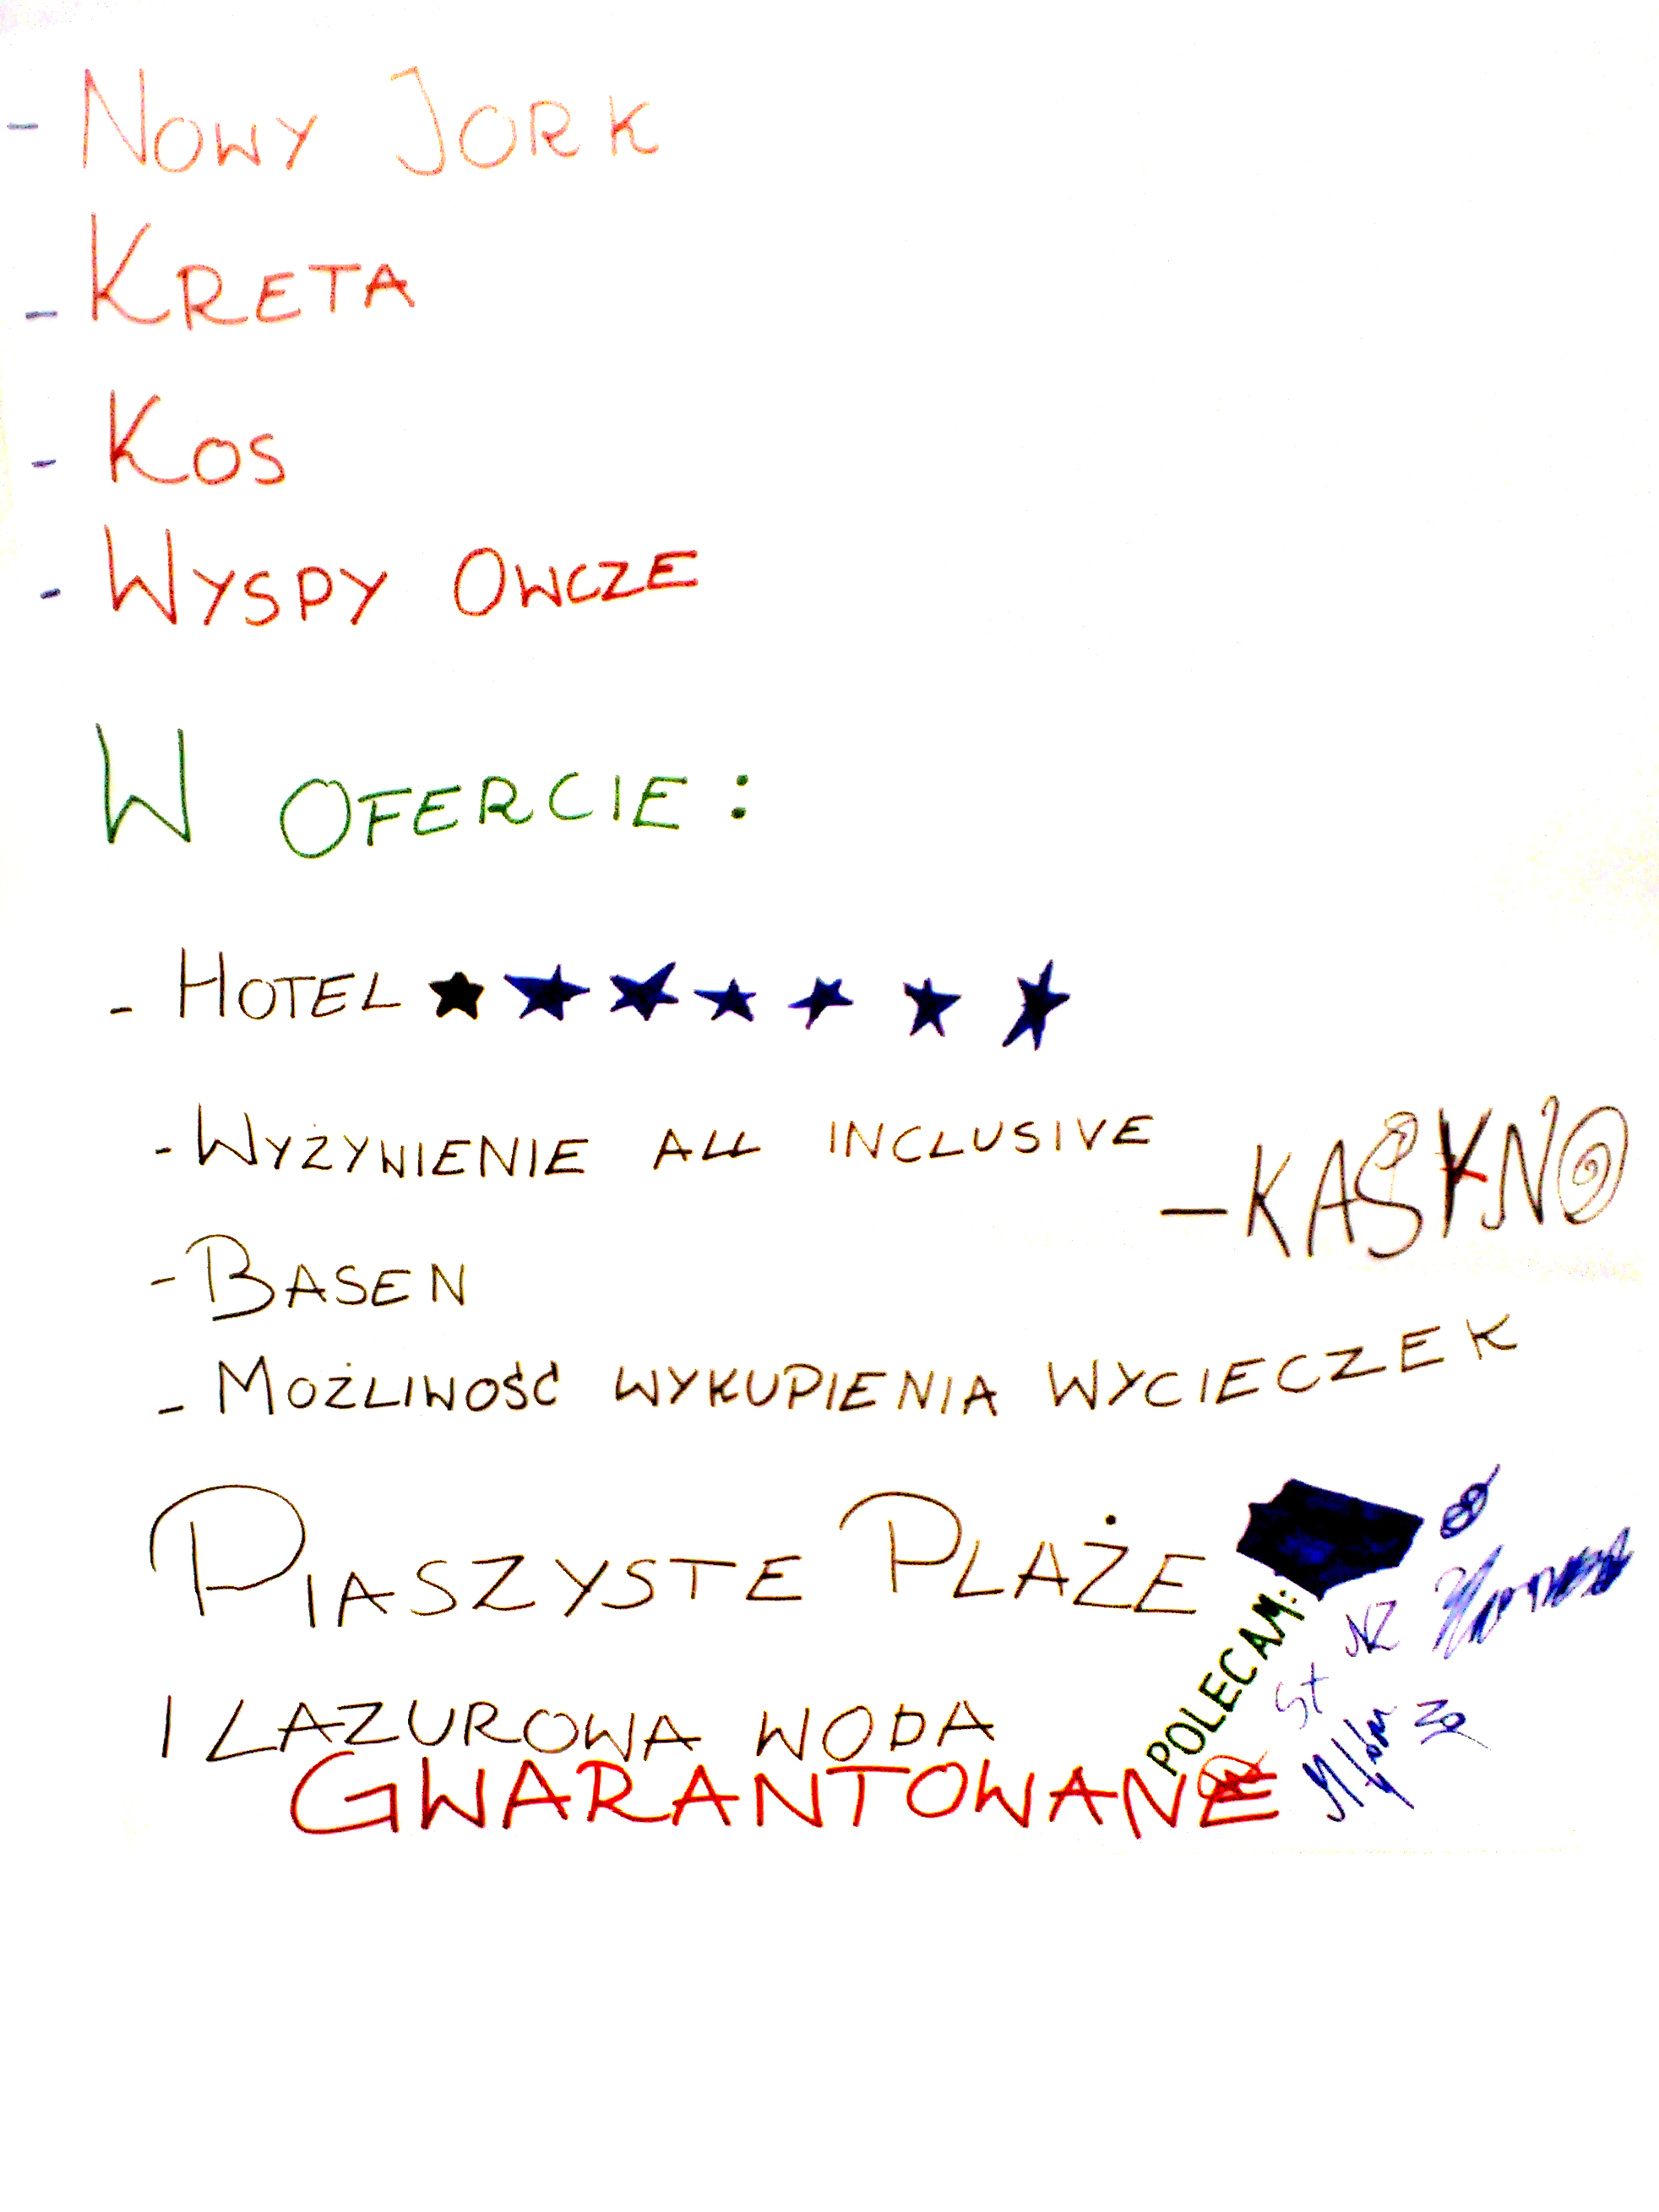 - NOWY JORK
- KRETA
- KOS
- WYSPY OWCZE
W OFERCIE:
- HOTEL ★★★★★★★
- WYŻYNIENIE ALL INCLUSIVE
- KASYNO
- BASEN
- MOŻLIWOŚĆ WYKUPIENIA WYCIECZEK
PIASZYSTE PLAŻE
I LAZUROWA WODA
GWARANTOWANE
POLECAM: